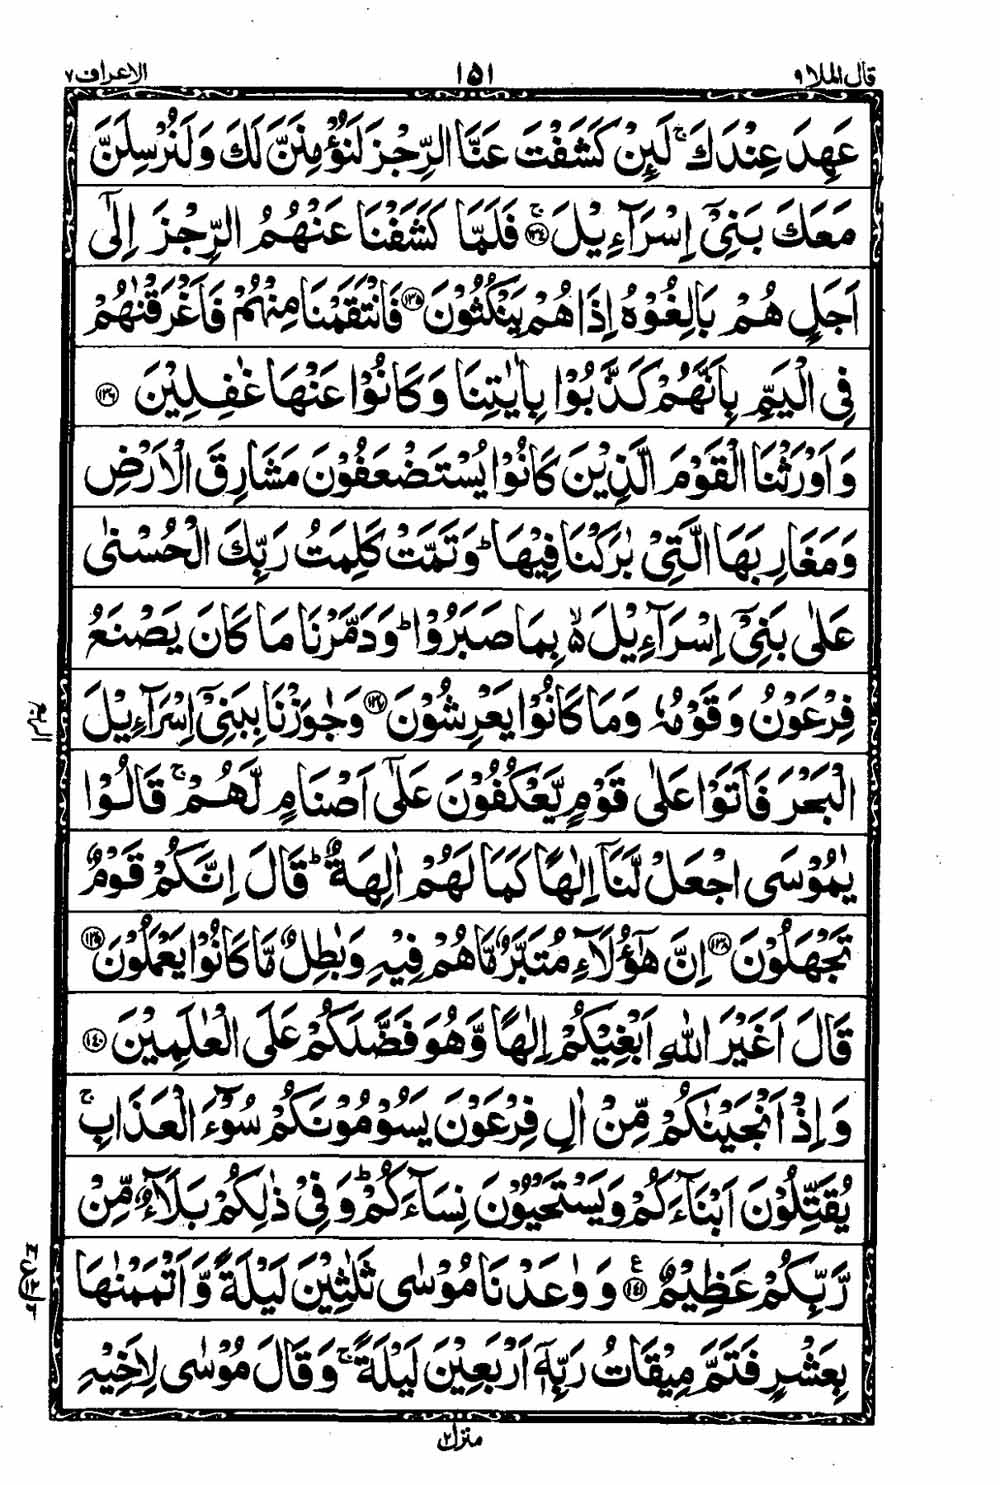 قال الملا ٩ ١٥١ الاعراف ٧
عَهِدَ عِنْدَكَ ۚ لَىِٕنْ كَشَفْتَ عَنَّا الرِّجْزَ لَنُؤْمِنَنَّ لَكَ وَلَنُرْسِلَنَّ
مَعَكَ بَنِیْۤ اِسْرَآءِیْلَ ۚ‏﴿۱۳۴﴾ فَلَمَّا كَشَفْنَا عَنْهُمُ الرِّجْزَ اِلٰۤی
اَجَلٍ هُمْ بٰلِغُوْهُ اِذَا هُمْ یَنْكُثُوْنَ ﴿۱۳۵﴾ فَانْتَقَمْنَا مِنْهُمْ فَاَغْرَقْنٰهُمْ
فِی الْیَمِّ بِاَنَّهُمْ كَذَّبُوْا بِاٰیٰتِنَا وَكَانُوْا عَنْهَا غٰفِلِیْنَ ﴿۱۳۶﴾
وَاَوْرَثْنَا الْقَوْمَ الَّذِیْنَ كَانُوْا یُسْتَضْعَفُوْنَ مَشَارِقَ الْاَرْضِ
وَمَغَارِبَهَا الَّتِیْ بٰرَكْنَا فِیْهَا ؕ وَتَمَّتْ كَلِمَتُ رَبِّكَ الْحُسْنٰی
عَلٰی بَنِیْۤ اِسْرَآءِیْلَ ۙ۬ بِمَا صَبَرُوْا ؕ وَدَمَّرْنَا مَا كَانَ یَصْنَعُ
فِرْعَوْنُ وَقَوْمُهٗ وَمَا كَانُوْا یَعْرِشُوْنَ ﴿۱۳۷﴾ وَجٰوَزْنَا بِبَنِیْۤ اِسْرَآءِیْلَ
الْبَحْرَ فَاَتَوْا عَلٰی قَوْمٍ یَّعْكُفُوْنَ عَلٰۤی اَصْنَامٍ لَّهُمْ ۚ قَالُوْا
یٰمُوْسَی اجْعَلْ لَّنَاۤ اِلٰهًا كَمَا لَهُمْ اٰلِهَةٌ ؕ قَالَ اِنَّكُمْ قَوْمٌ
تَجْهَلُوْنَ ﴿۱۳۸﴾ اِنَّ هٰۤؤُلَآءِ مُتَبَّرٌ مَّا هُمْ فِیْهِ وَبٰطِلٌ مَّا كَانُوْا یَعْمَلُوْنَ ﴿۱۳۹﴾
قَالَ اَغَیْرَ اللّٰهِ اَبْغِیْكُمْ اِلٰهًا وَّهُوَ فَضَّلَكُمْ عَلَی الْعٰلَمِیْنَ ﴿۱۴۰﴾
وَاِذْ اَنْجَیْنٰكُمْ مِّنْ اٰلِ فِرْعَوْنَ یَسُوْمُوْنَكُمْ سُوْٓءَ الْعَذَابِ ۚ
یُقَتِّلُوْنَ اَبْنَآءَكُمْ وَیَسْتَحْیُوْنَ نِسَآءَكُمْ ؕ وَفِیْ ذٰلِكُمْ بَلَآءٌ مِّنْ
رَّبِّكُمْ عَظِیْمٌ ﴿۱۴۱﴾ ع وَوٰعَدْنَا مُوْسٰی ثَلٰثِیْنَ لَیْلَةً وَّاَتْمَمْنٰهَا
بِعَشْرٍ فَتَمَّ مِیْقَاتُ رَبِّهٖۤ اَرْبَعِیْنَ لَیْلَةً ۚ وَقَالَ مُوْسٰی لِاَخِیْهِ
منزل ٢